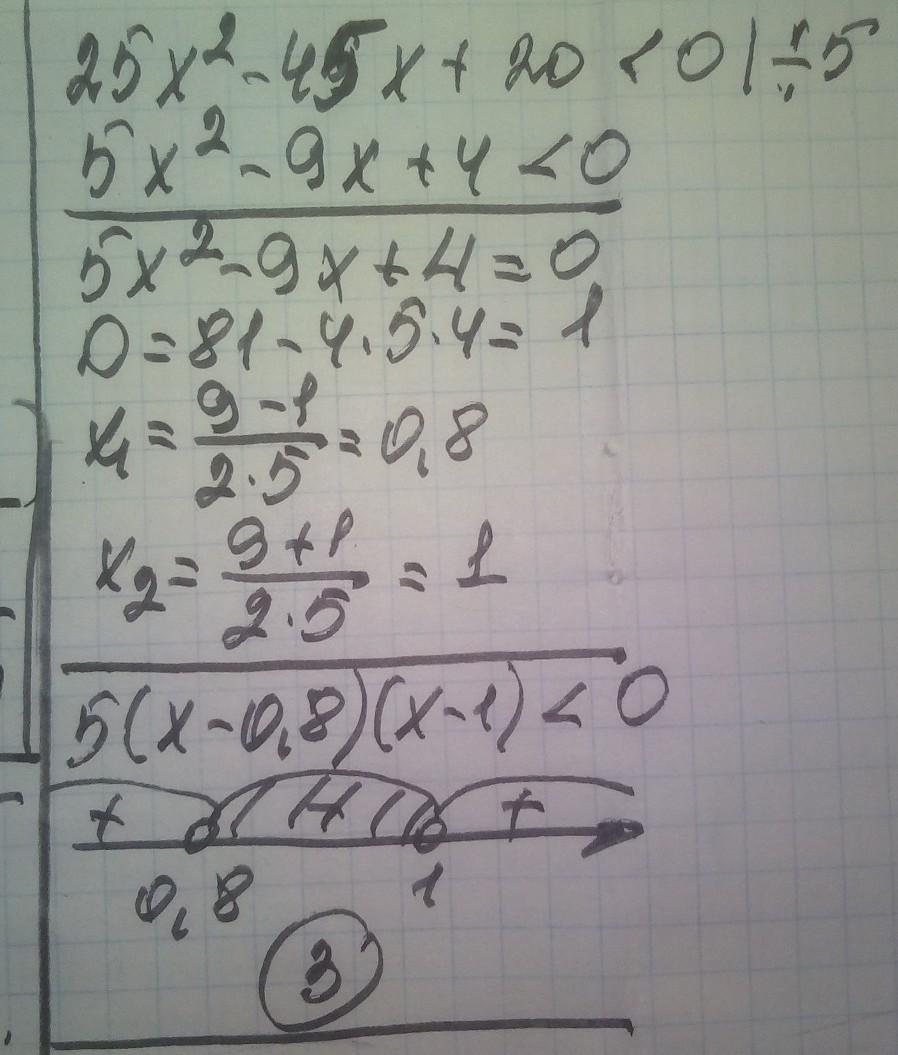 25x² - 45x + 20 < 0 | ÷5
5x² - 9x + 4 < 0
5x² - 9x + 4 = 0
D = 81 - 4·5·4 = 1
x₁ = (9-1)/(2·5) = 0,8
x₂ = (9+1)/(2·5) = 1
5(x-0,8)(x-1) < 0
+ - +
0,8 1
3